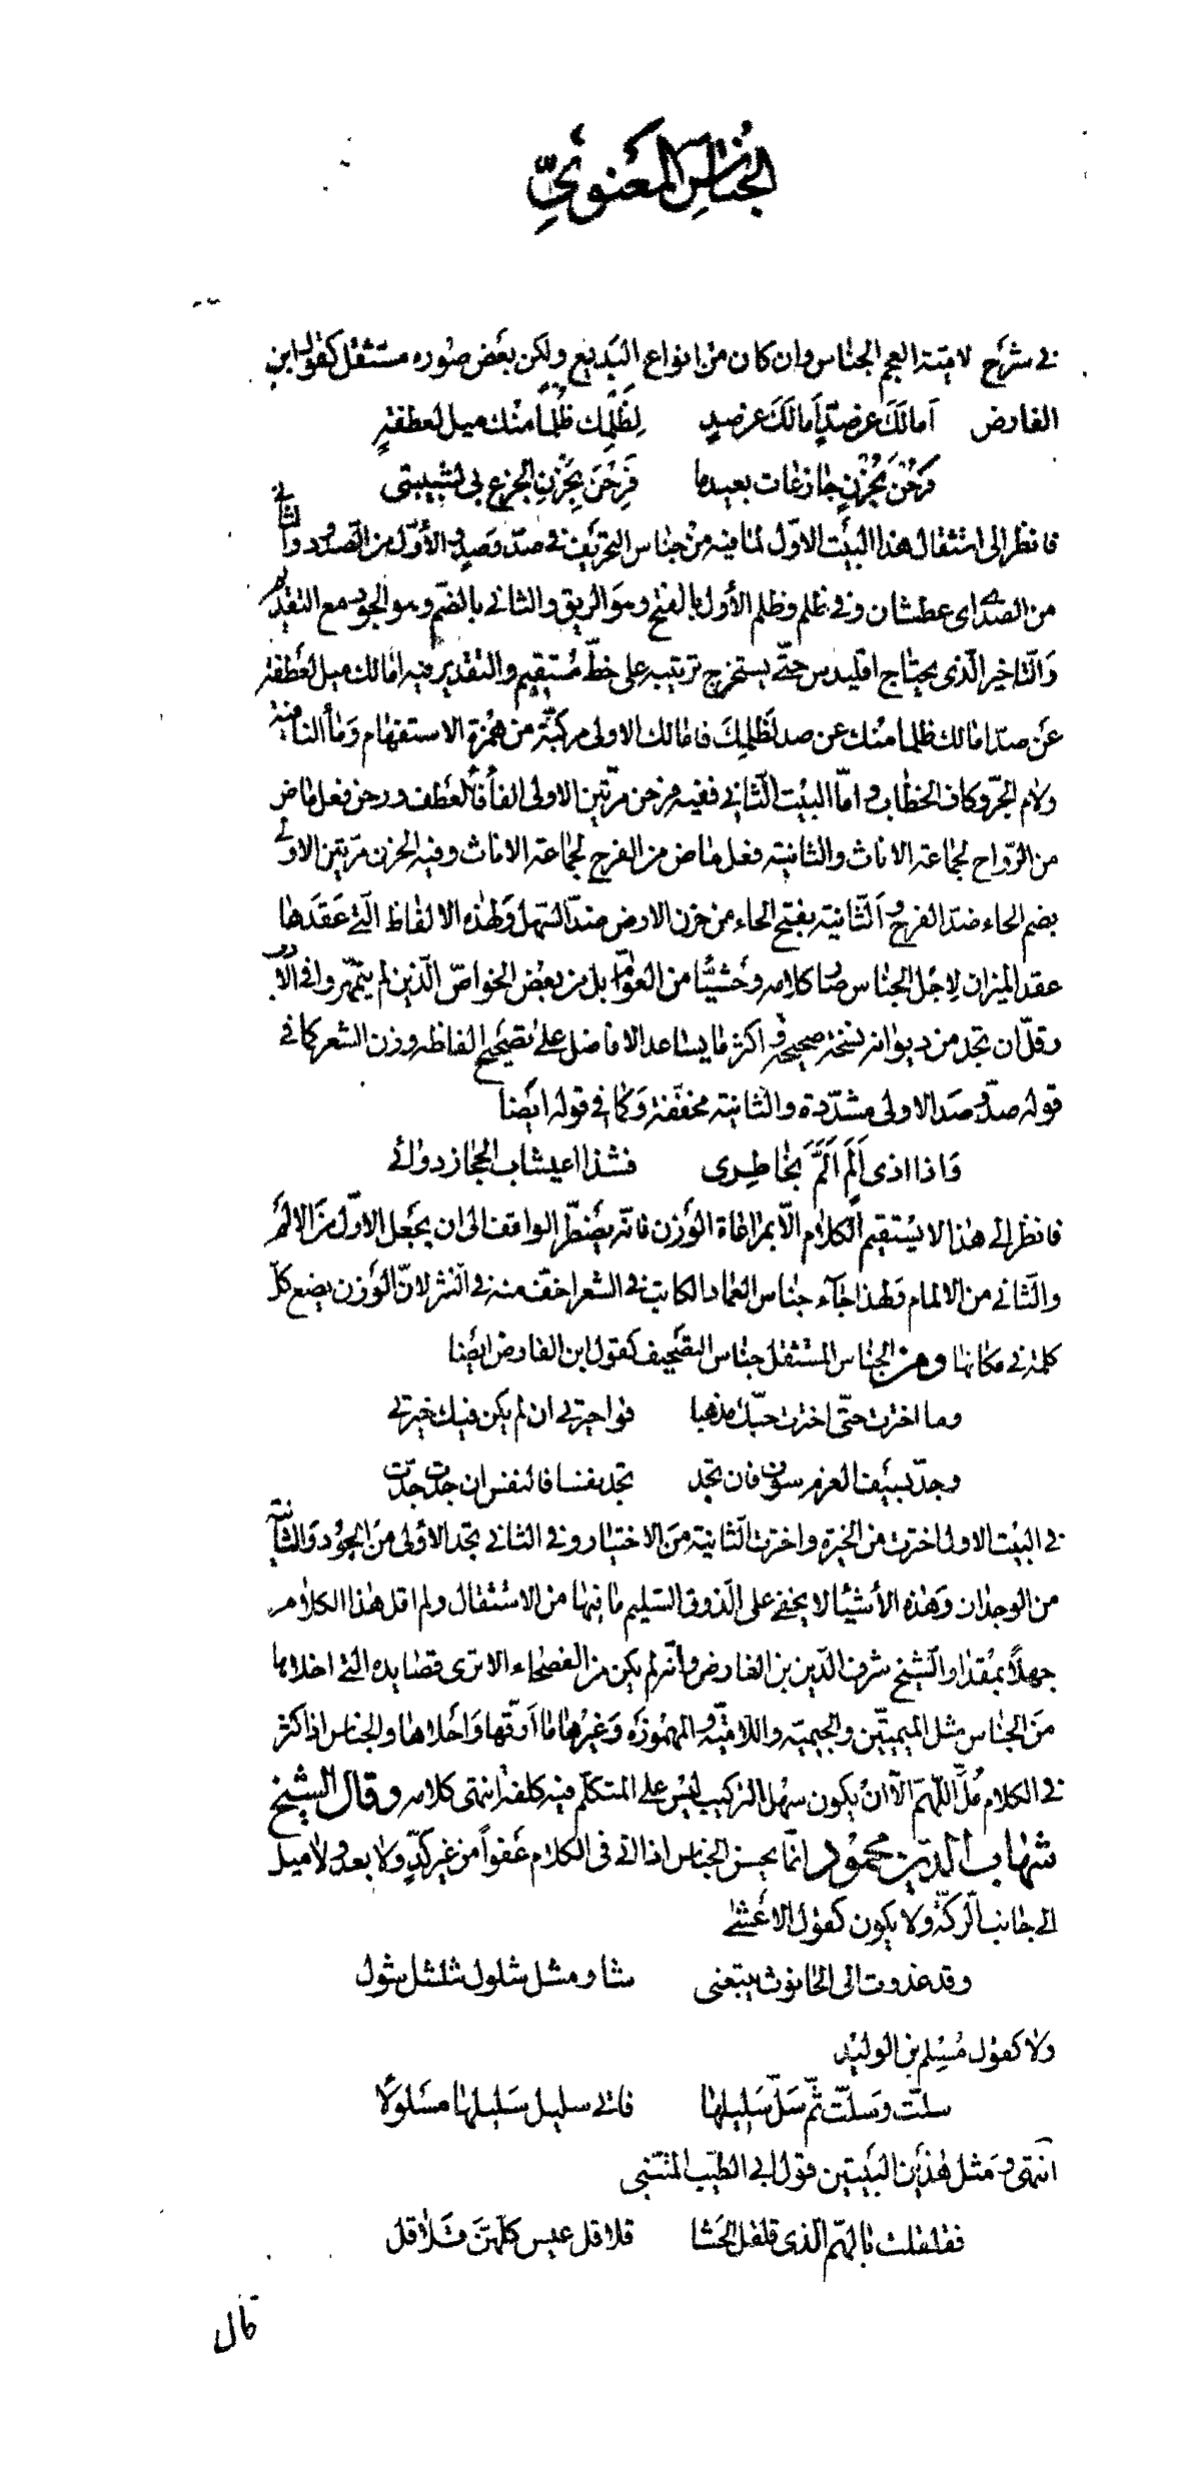 الجناس المعنويّ
في شرح لاميّة العجم الجناس وان كان من انواع البديع ولكن بعض صوره مستثقل كقول ابن
الفارض اَمالَكَ عن صدٍّ اَمالَكَ عن صدٍ لِظَلمِك ظُلماً منك ميل لعطفة
فَرُحْنَ بِحُزْنٍ جازعات بعيدما فَرِحْنَ بِحَزْنِ الجزع بي لشبيبتي
فانظر الى استثقال هذا البيت الاوّل لما فيه من جناس التحريف في صدّ وصدٍ والأوّل من الصدود والثاني
من الصدى اى عطشان وفي ظلم وظلم الأول بالفتح وهو الريق والثاني بالضم وهو الجور مع التقديم
والتاخير الّذى يحتاج اقليدس حتّى يستخرج ترتيبه على خطّ مُستقيم والتقدير فيه امالك ميل لعطفة
عَن صدّ امالك ظلما منك عن صد لظلمِكَ فامالك الاولى مركبّة من همزة الاستفهام وَما النافية
ولام الجرّ وكاف الخطاب وامّا البيت الثاني ففيه فرحن مرّتين الاولى الفأ فأ لعطف ورحن فعل ماض
من الرّواح لجماعة الاناث والثانية فعل ماض من الفرح لجماعة الاناث وفيه الحزن مرّتين الاولى
بضم الحاء ضدّ الفرح وَالثّانية بفتح الحاء من حزن الارض ضدّ السّهل وَلهذه الالفاظ الّتي عَقدَها
عقد الميزان لِاجل الجناس صار كلامه وحشيّا من العوامّ بل من بعض الخواصّ الّذين لم يتمهّروا في الادب
وقلّ ان تجد من ديوانه نسخة صحيحة واكثر ما يساعد الافاضل على تصحيح الفاظه وزن الشعر كما في
قوله صدّ وصَد الاولى مشدّدة والثانية مخفّفة وَكما في قوله ايضا
وَاذا اذى اَلَمٍ اَلَمَّ بخاطِرى فشذا اعيشاب الحجاز دوائي
فانظر الى هذا لا يستقيم الكلام الّا بمراعاة الوزن فانّه يضطرّ الواقف الى ان يجعل الاوّل من الالم
والثّاني من الالمام وَلهذا جآء جناس العماد الكاتب في الشعر اخفّ منه في النثر لانّ الوزن يضع كلّ
كلمة في مكانها ومن الجناس المستثقل جناس التصحيف كقول ابن الفارض ايضا
وما اخترت حتّى اخترت حبّك مذهبا فواحيرتي ان لم يكن فيك خيرتي
وجدّ بسيف العزم سوف فان تجد تجد نفسا فالنفس ان جدت جدّت
في البيت الاولى اخترت من الخبرة واخترت الثّانية من الاختيار وفي الثاني تجد الاولى من الجود وَالثانية
من الوجدان وَهذه الأشيا لا يخفى على الذوق السّليم ما فيها من الاستثقال ولم اقل هذا الكلام
جهلًا بمقدار الشيخ شرف الدّين بن الفارض وانّه لم يكن من الفصحاء الا ترى قصايده الّتي اخلاها
من الجناس مثل الميميتين والجيميه واللاميّه والمهموزه وَغيرها ما اَرقّها وَاحلاها والجناس اذا كثر
في الكلام مُلَّ اللّهمّ الّا ان يكون سهل التركيب ليس على المتكلّم فيه كلفة انتهى كلامه وقال الشيخ
شهاب الدّين محمُود انّما يحسن الجناس اذا اتى فى الكلام عَفواً من غير كدٍّ ولا بعد ولا ميل
الى جانب الرّكّة ولا يكون كقول الاعشى
وقد غدوت الى الحانوت يتبعنى شاو مشل شلول شلشل شول
ولا كقول مُسْلم بن الوليد
سلّت وسَلّت ثمّ سَلّ سَليلها فاتى سليل سَليلها مسَلولا
انتهى ومَثل هذين البَيتين قول ابى الطيّب المتنبى
فقلقلت بالهمّ الّذى قلقل الحَشا قلاقل عيس كلّهنّ قَلاقل
قال